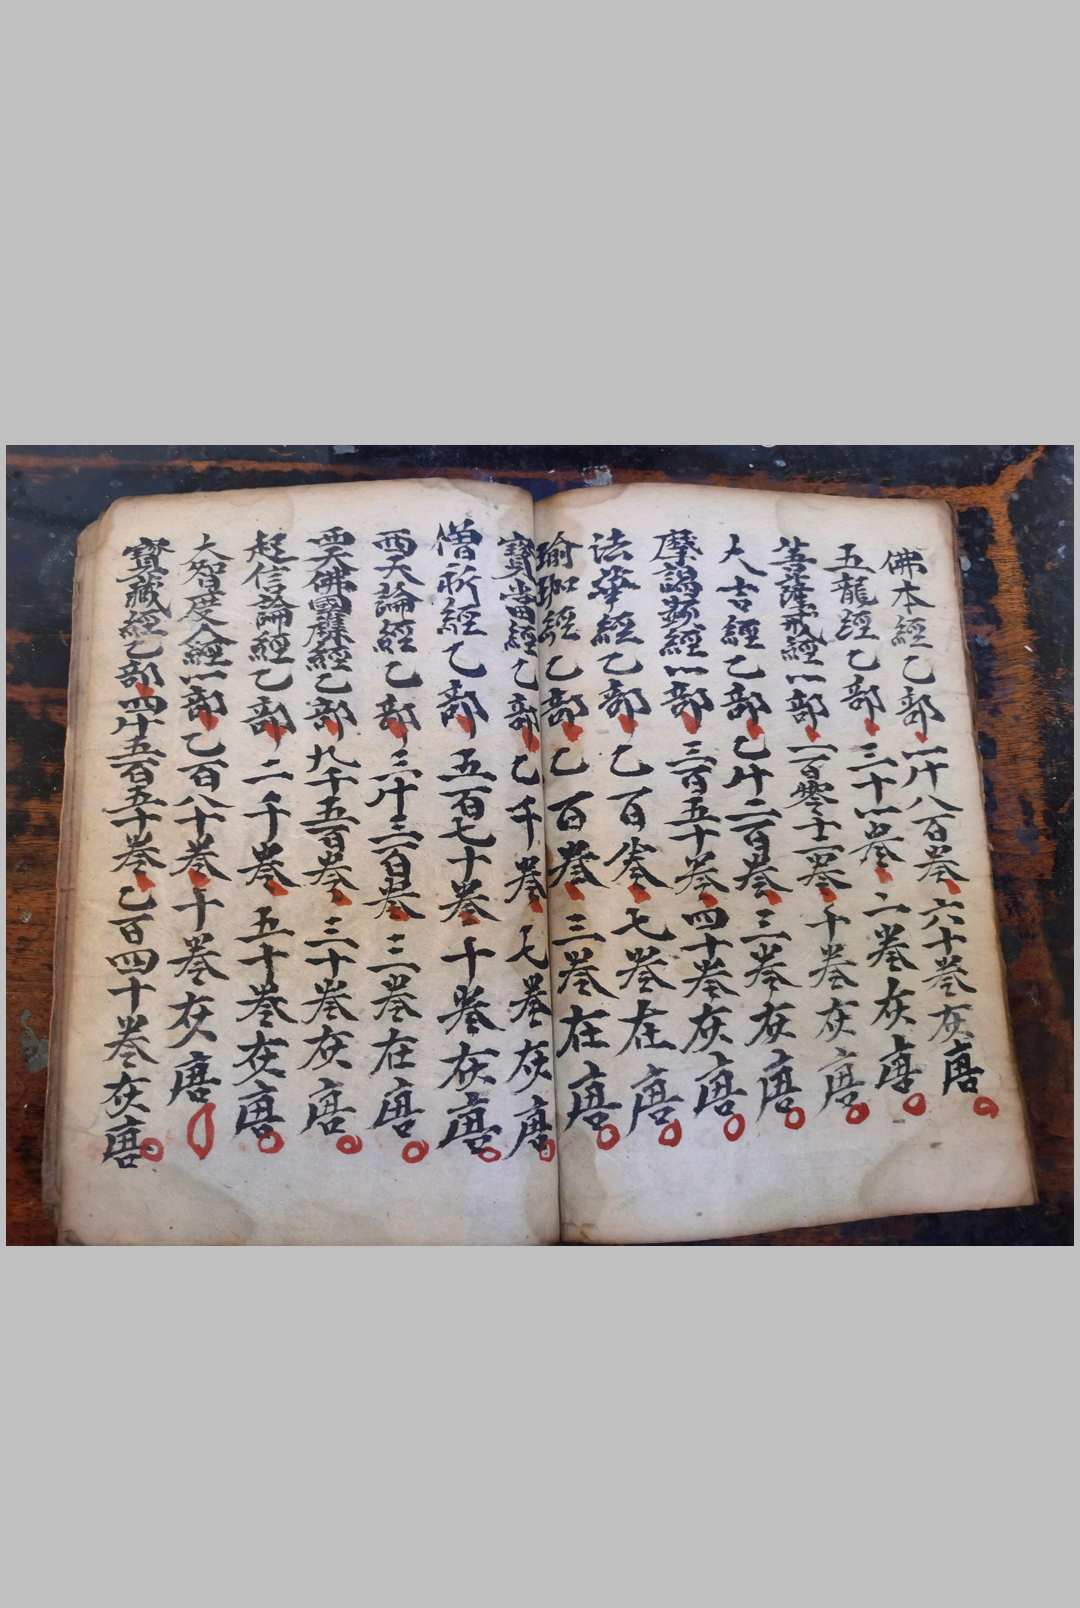 佛本經乙部一千八百卷六十卷在唐
五龍經乙部三十一卷二卷在唐
菩薩戒經一部一百零十一卷千卷在唐
大吉經乙部乙千二百卷三卷在唐
摩謁經一部三百五十卷四十卷在唐
法華經乙部乙百卷七卷在唐
瑜珈經乙部乙百卷三卷在唐
寶當經乙部乙千卷七卷在唐
僧祈經乙部五百七十卷十卷在唐
西天論經乙部三千三百卷三卷在唐
西天佛國經乙部九千五百卷三十卷在唐
起信論經乙部二千卷五十卷在唐
大智度經一部乙百八十卷十卷在唐
寶藏經乙部四千五百五十卷乙百四十卷在唐